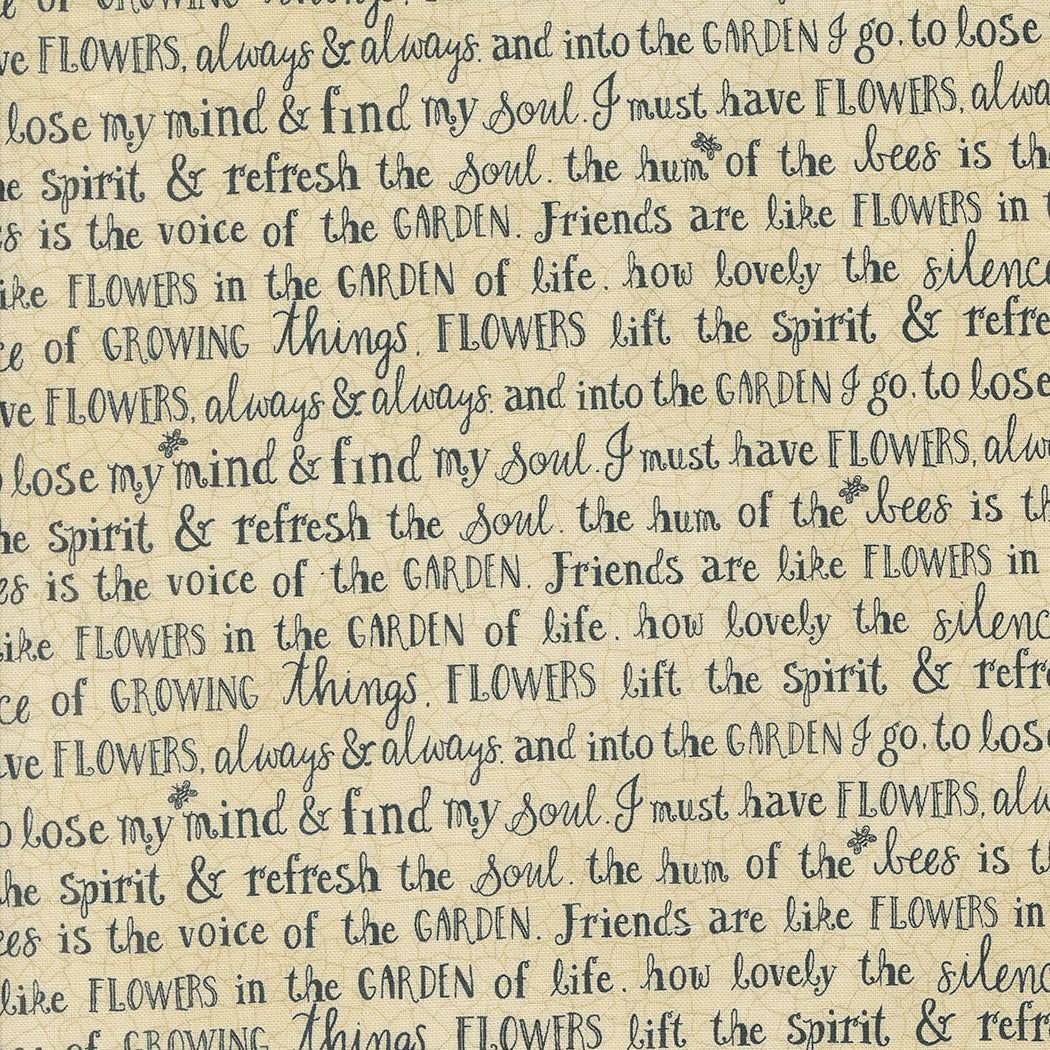 of GROWING things.
ve FLOWERS, always & always. and into the GARDEN I go, to lose
lose my mind & find my soul. I must have FLOWERS, alwa
he spirit & refresh the soul. the hum of the bees is th
es is the voice of the GARDEN. Friends are like FLOWERS in t
ike FLOWERS in the GARDEN of life. how lovely the silence
ce of GROWING things. FLOWERS lift the spirit & refre
ve FLOWERS, always & always. and into the GARDEN I go, to lose
o lose my mind & find my soul. I must have FLOWERS, alw
he spirit & refresh the soul. the hum of the bees is th
es is the voice of the GARDEN. Friends are like FLOWERS in
like FLOWERS in the GARDEN of life. how lovely the silenc
ce of GROWING things. FLOWERS lift the spirit & refre
ave FLOWERS, always & always. and into the GARDEN I go, to lose
o lose my mind & find my soul. I must have FLOWERS, alw
the spirit & refresh the soul. the hum of the bees is t
ees is the voice of the GARDEN. Friends are like FLOWERS in
like FLOWERS in the GARDEN of life. how lovely the silenc
of GROWING things. FLOWERS lift the spirit & refr